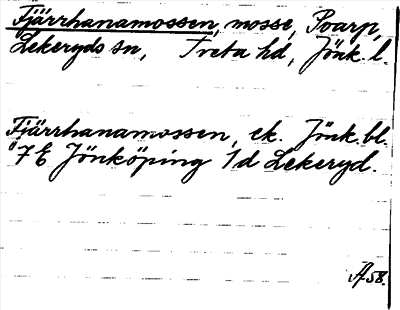 Fjärrhanamossen, mosse, Svarp,
Lekeryds sn, Tveta hd, Jönk. l.
Fjärrhanamossen, ek. Jönk. bl.
"7 E Jönköping 1d Lekeryd.
Å 58.